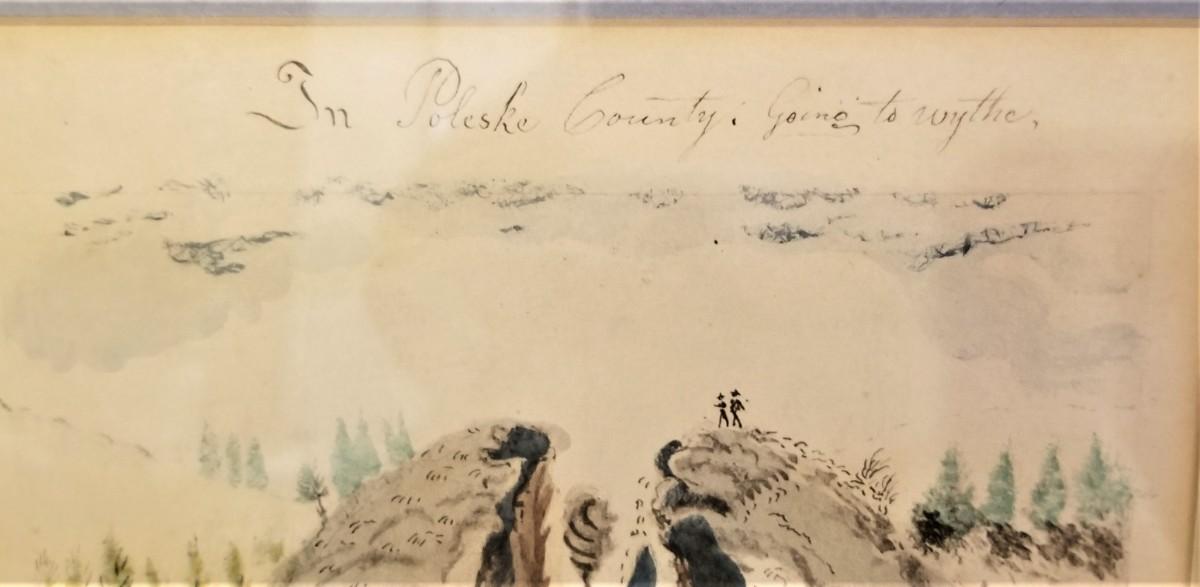 In Poleske County: Going to wythe,